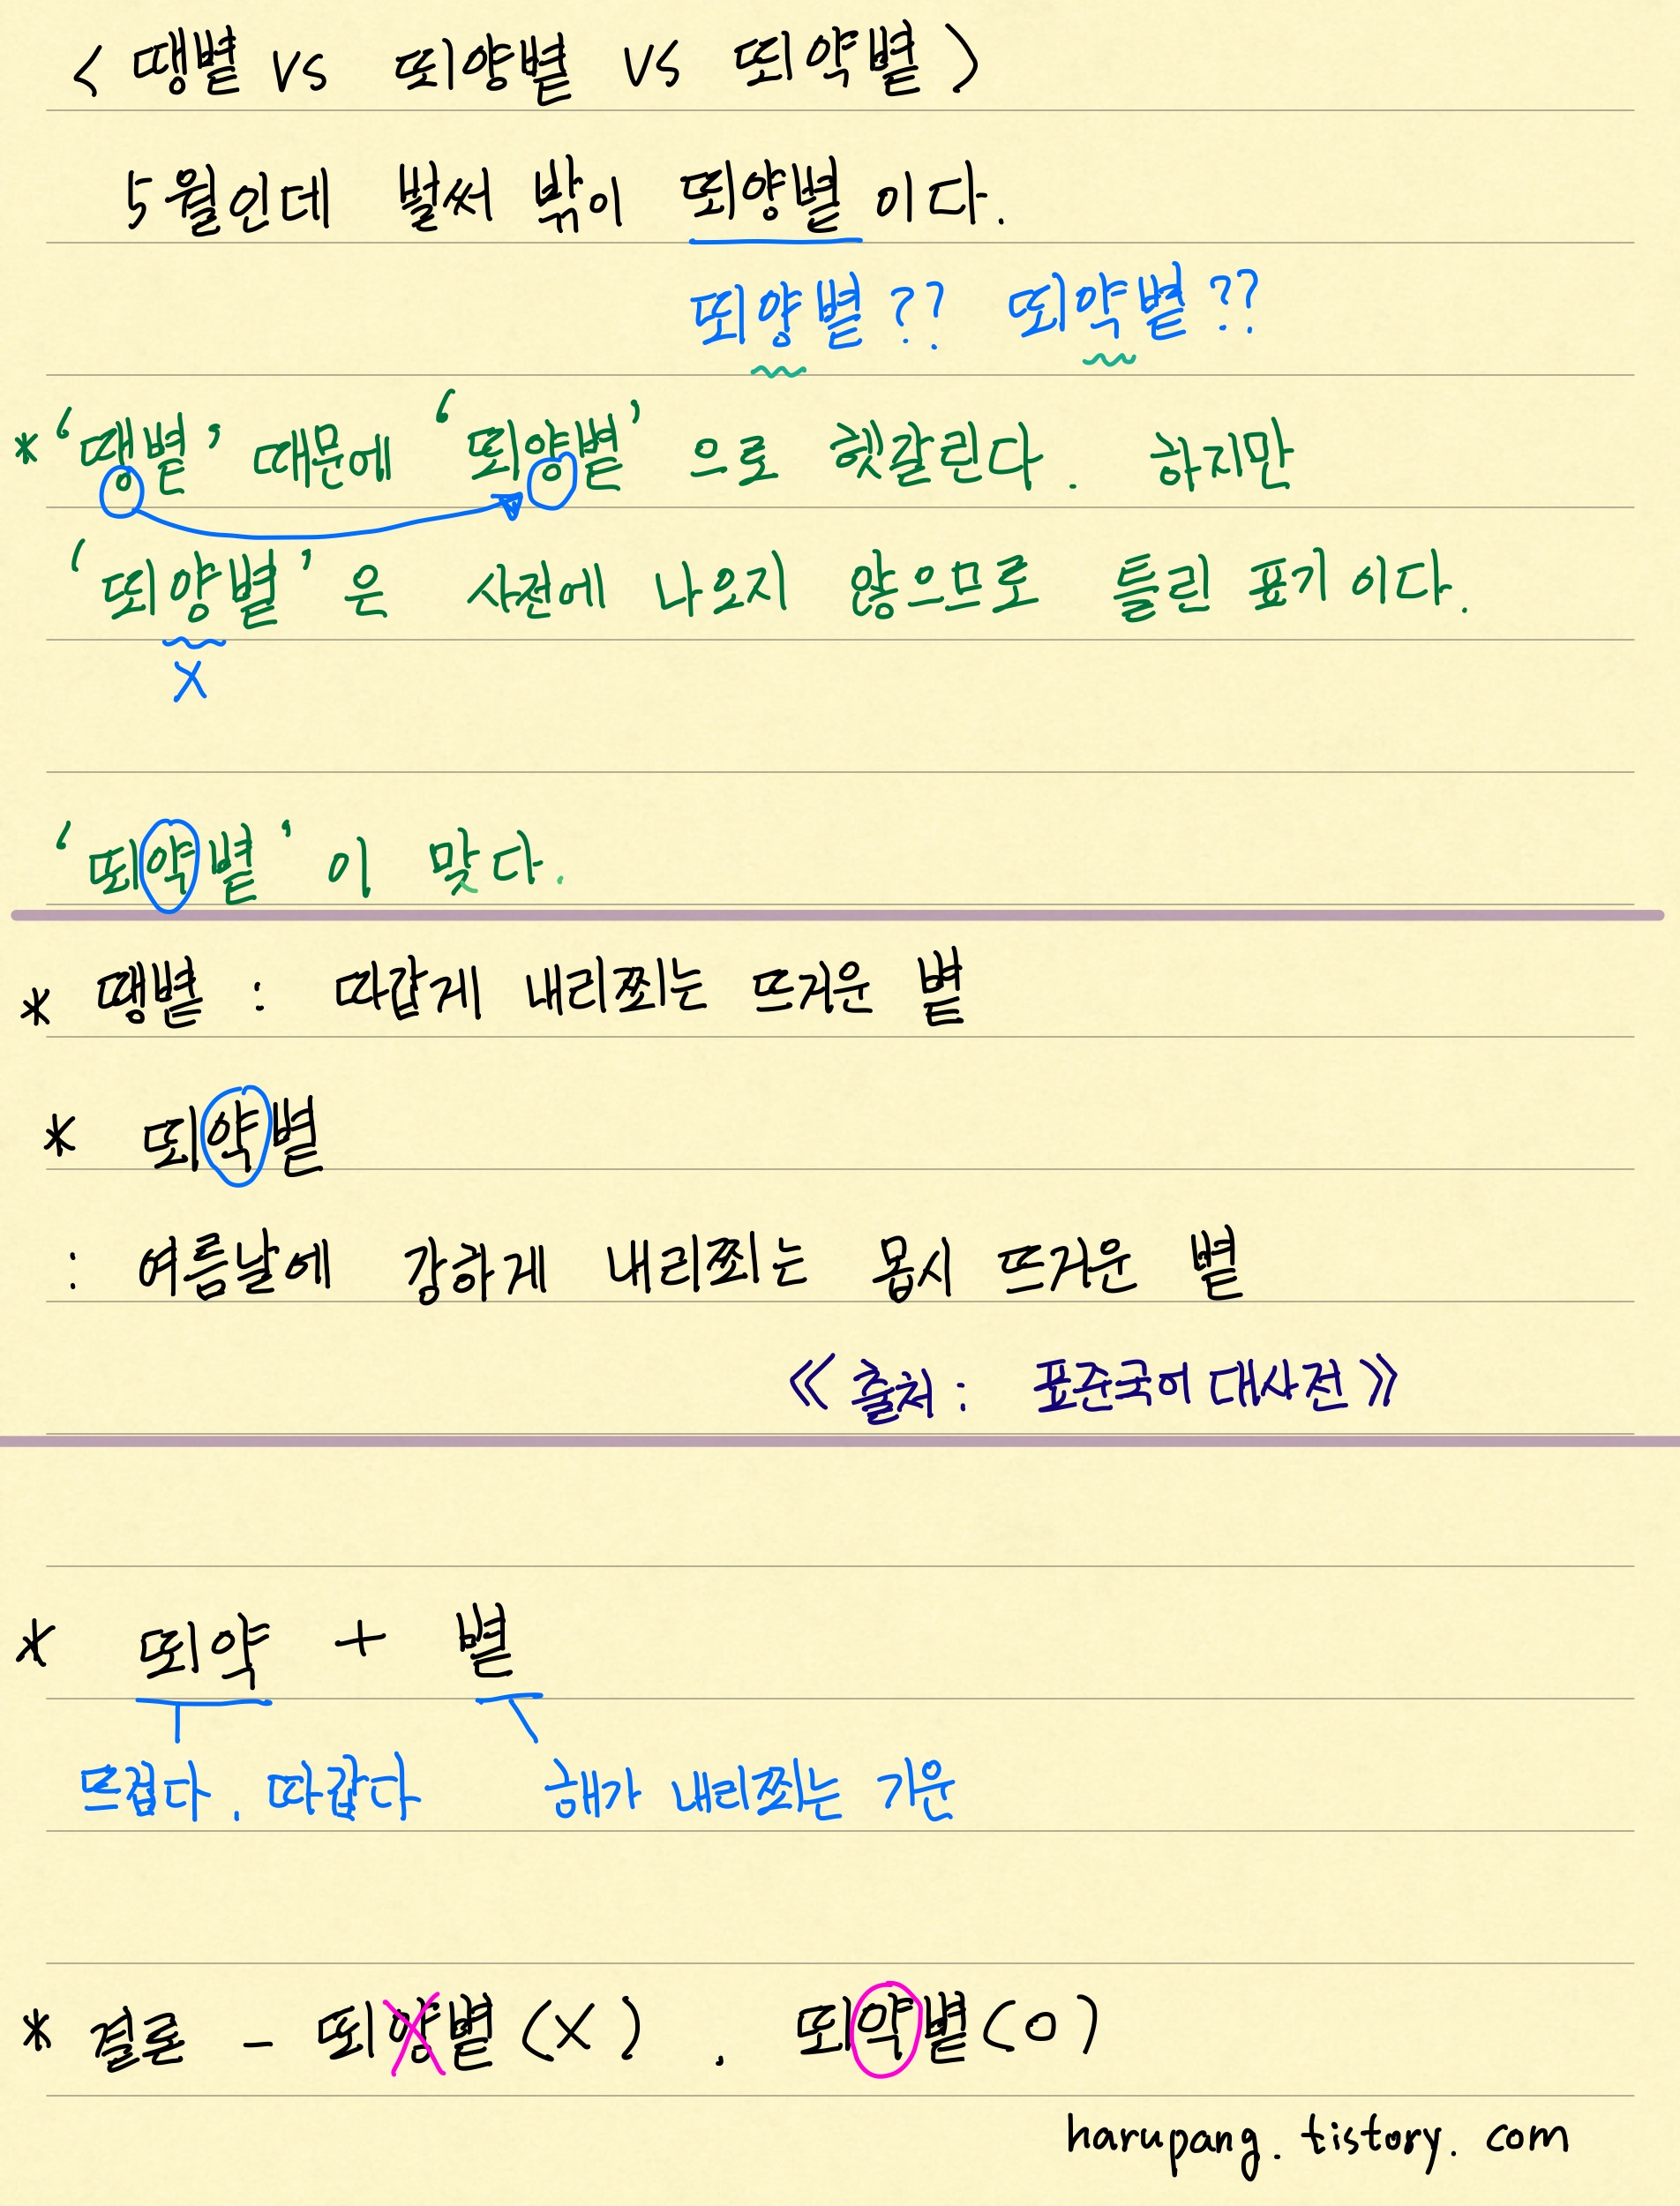 < 땡볕 vs 뙤양볕 vs 뙤약볕 >
5월인데 벌써 밖이 뙤양볕이다.
뙤양볕?? 뙤약볕??
* '땡볕' 때문에 '뙤양볕'으로 헷갈린다. 하지만
'뙤양볕'은 사전에 나오지 않으므로 틀린 표기이다.
X
'뙤약볕'이 맞다.
* 땡볕 : 따갑게 내리쬐는 뜨거운 볕
* 뙤약볕
: 여름날에 강하게 내리쬐는 몹시 뜨거운 볕
《출처 : 표준국어대사전》
* 뙤약 + 볕
뜨겁다, 따갑다 해가 내리쬐는 기운
* 결론 - 뙤양볕(X), 뙤약볕(O)
harupang.tistory.com